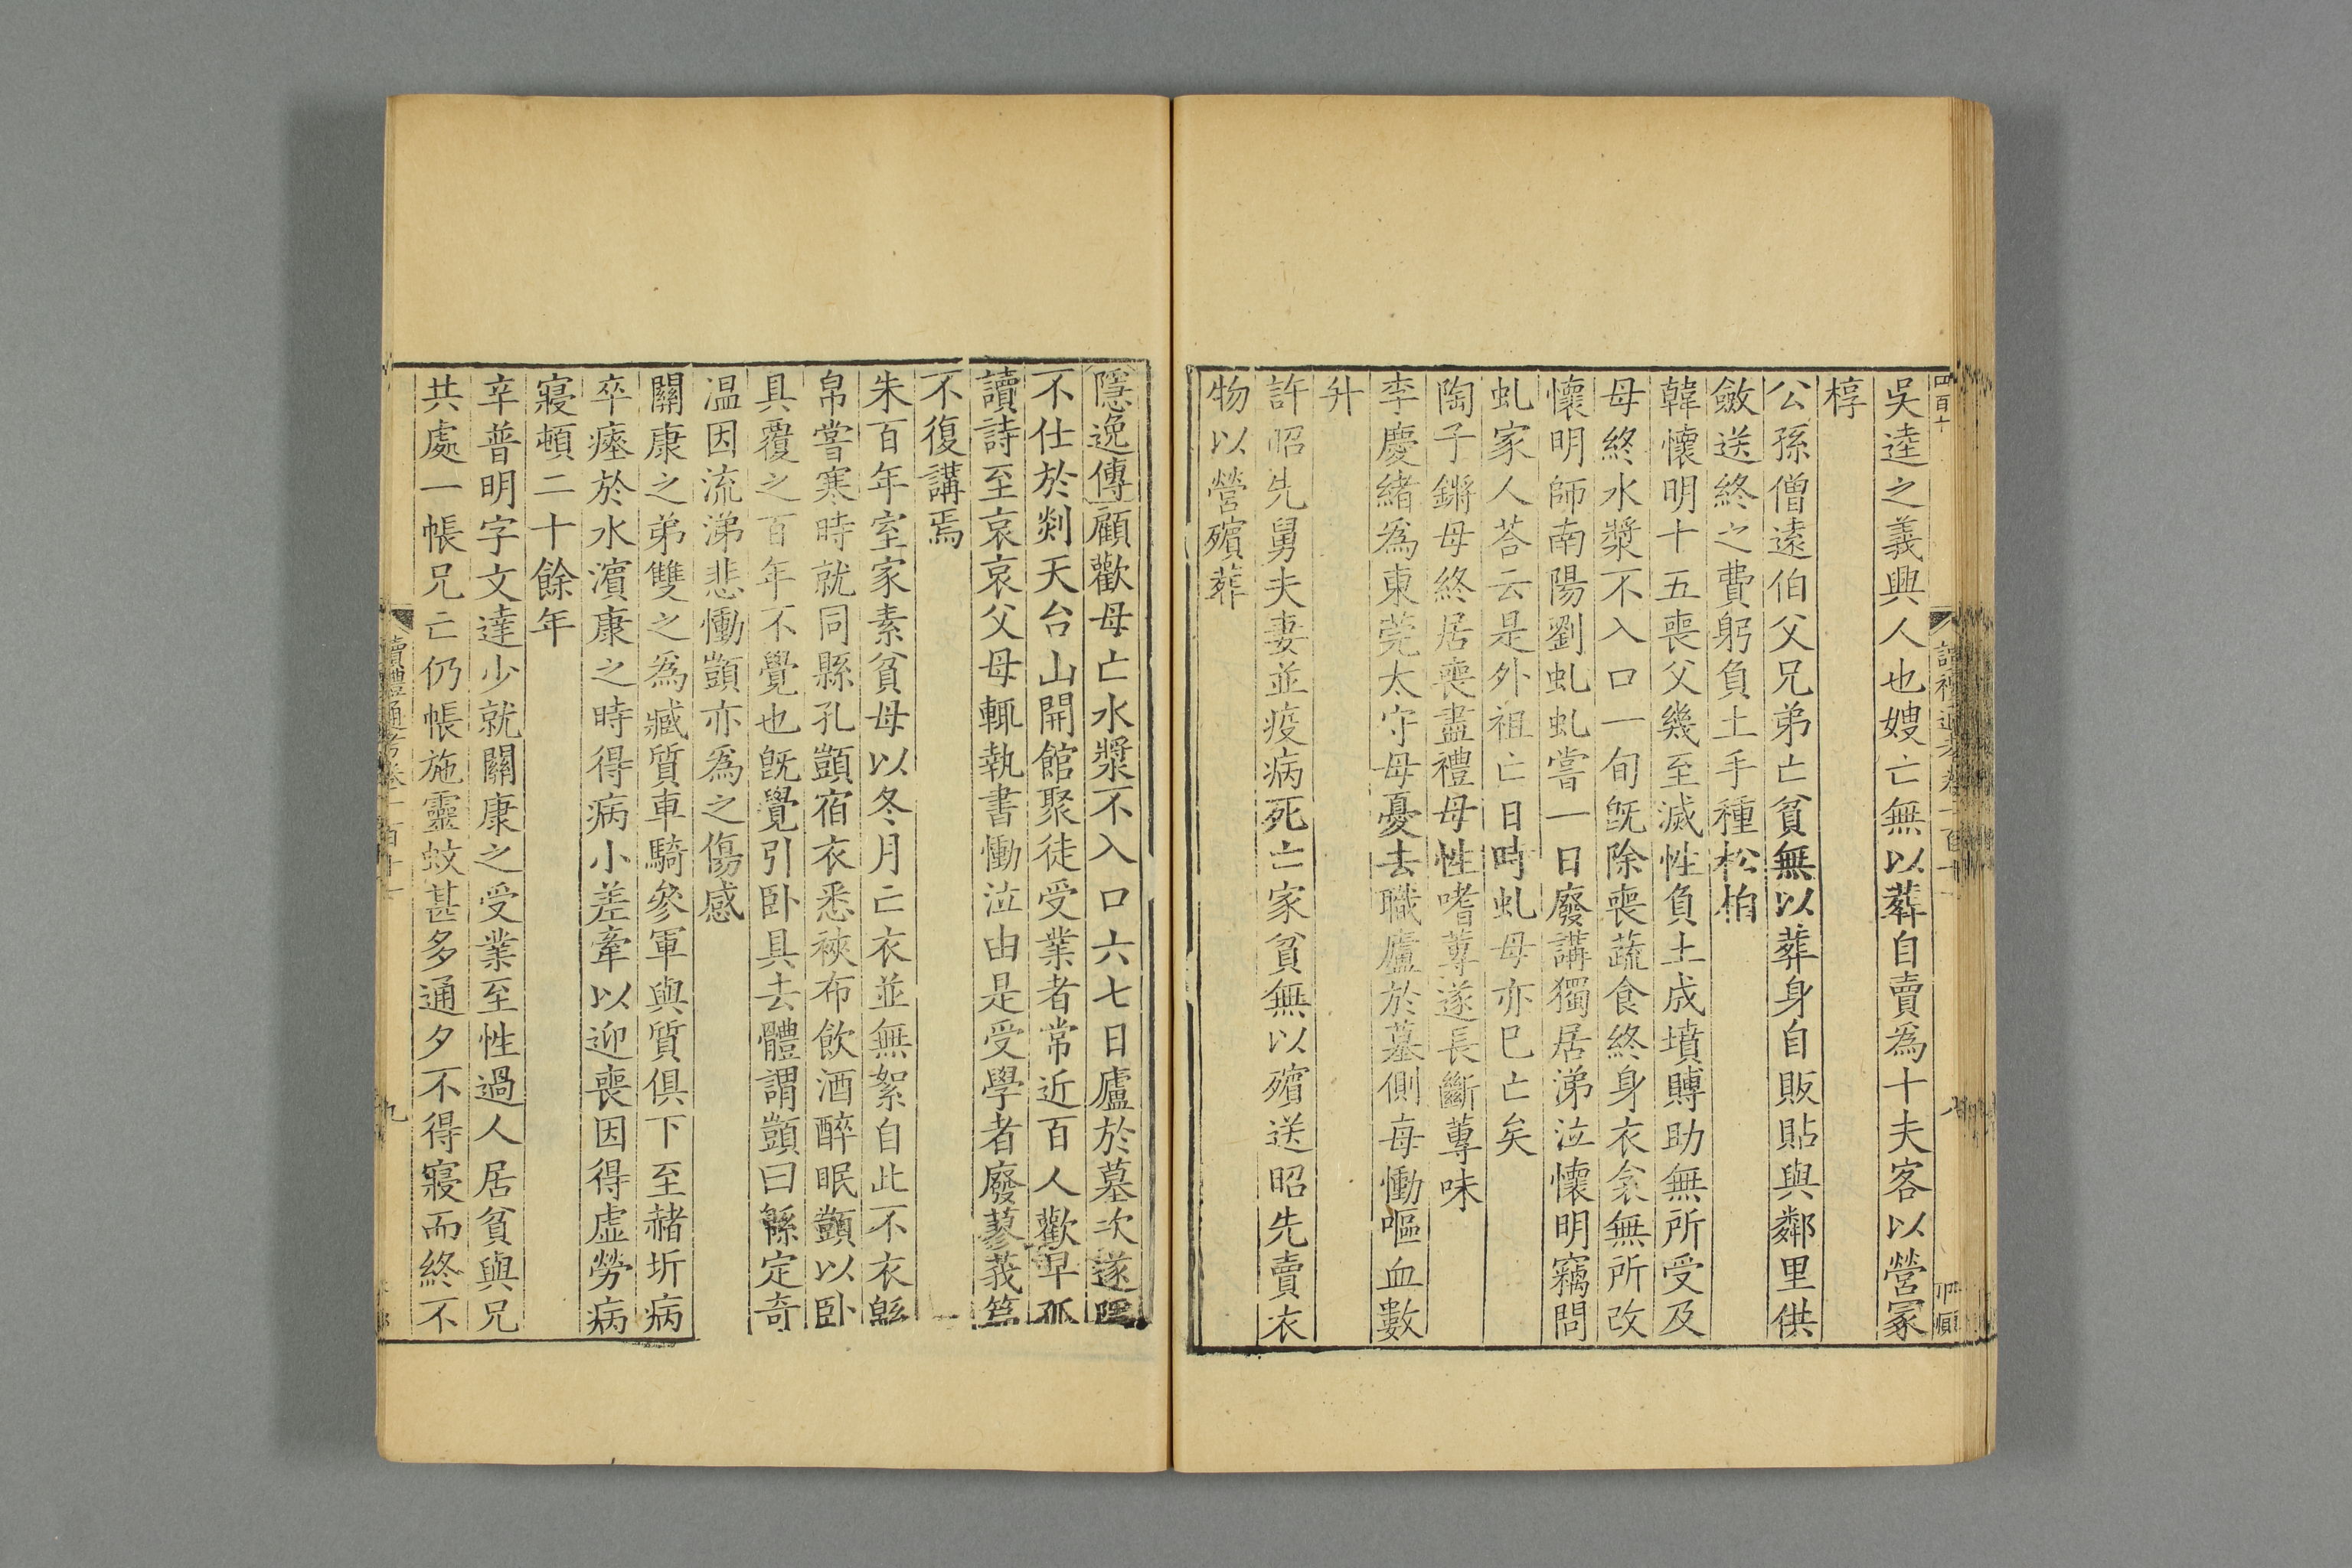 四百十
讀禮通考卷一百十一
八
吳逵之義興人也嫂亡無以葬自賣爲十夫客以營冢
椁
公孫僧遠伯父兄弟亡貧無以葬身自販貼與鄰里供
斂送終之費躬負土手種松柏
韓懷明十五喪父幾至滅性負土成墳賻助無所受及
母終水漿不入口一旬旣除喪蔬食終身衣衾無所改
懷明師南陽劉虬虬嘗一日廢講獨居涕泣懷明竊問
虬家人荅云是外祖亡日時虬母亦巳亡矣
陶子鏘母終居喪盡禮母性嗜蓴遂長斷蓴味
李慶緒爲東莞太守母憂去職廬於墓側每慟嘔血數
升
許昭先舅夫妻並疫病死亡家貧無以殯送昭先賣衣
物以營殯葬
隱逸傳顧歡母亡水漿不入口六七日廬於墓次遂隱
不仕於剡天台山開館聚徒受業者常近百人歡早孤
讀詩至哀哀父母輒執書慟泣由是受學者廢蓼莪篇
不復講焉
朱百年室家素貧母以冬月亡衣並無絮自此不衣緜
帛嘗寒時就同縣孔顗宿衣悉裌布飲酒醉眠顗以卧
具覆之百年不覺也旣覺引卧具去體謂顗曰緜定奇
溫因流涕悲慟顗亦爲之傷感
關康之弟雙之爲臧質車騎參軍與質俱下至赭圻病
卒瘞於水濵康之時得病小差牽以迎喪因得虛勞病
寢頓二十餘年
辛普明字文達少就關康之受業至性過人居貧與兄
共處一帳兄亡仍帳施靈蚊甚多通夕不得寢而終不
讀禮通考卷一百十一
九